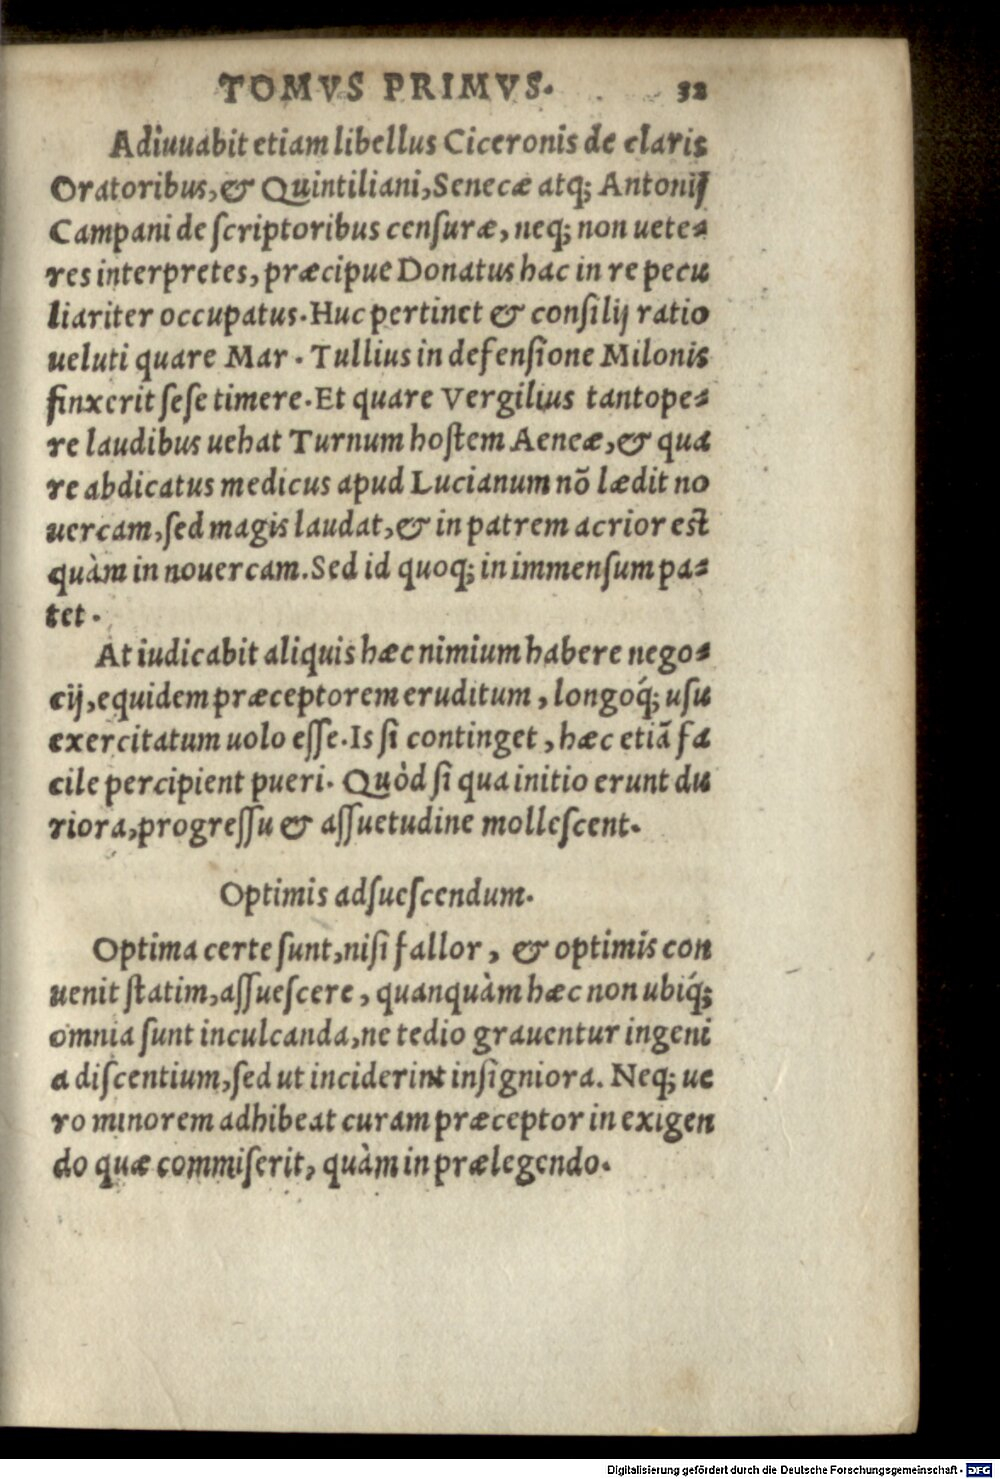 TOMVS PRIMVS. 32
Adiuuabit etiam libellus Ciceronis de claris
Oratoribus, & Quintiliani, Senecæ atq; Antonij
Campani de scriptoribus censuræ, neq; non uete-
res interpretes, præcipue Donatus hac in re pecu
liariter occupatus. Huc pertinet & consilij ratio
ueluti quare Mar. Tullius in defensione Milonis
finxerit sese timere. Et quare Vergilius tantope-
re laudibus uehat Turnum hostem Aeneæ, & qua
re abdicatus medicus apud Lucianum nō lædit no
uercam, sed magis laudat, & in patrem acrior est
quàm in nouercam. Sed id quoq; in immensum pa-
tet.
At iudicabit aliquis hæc nimium habere nego-
cij, equidem præceptorem eruditum, longoq́; usu
exercitatum uolo esse. Is si continget, hæc etiã fa
cile percipient pueri. Quòd si qua initio erunt du
riora, progressu & assuetudine mollescent.
Optimis adsuescendum.
Optima certe sunt, nisi fallor, & optimis con
uenit statim, assuescere, quanquàm hæc non ubiq́;
omnia sunt inculcanda, ne tedio grauentur ingeni
a discentium, sed ut inciderint insigniora. Neq; ue
ro minorem adhibeat curam præceptor in exigen
do quæ commiserit, quàm in prælegendo.
Digitalisierung gefördert durch die Deutsche Forschungsgemeinschaft - DFG